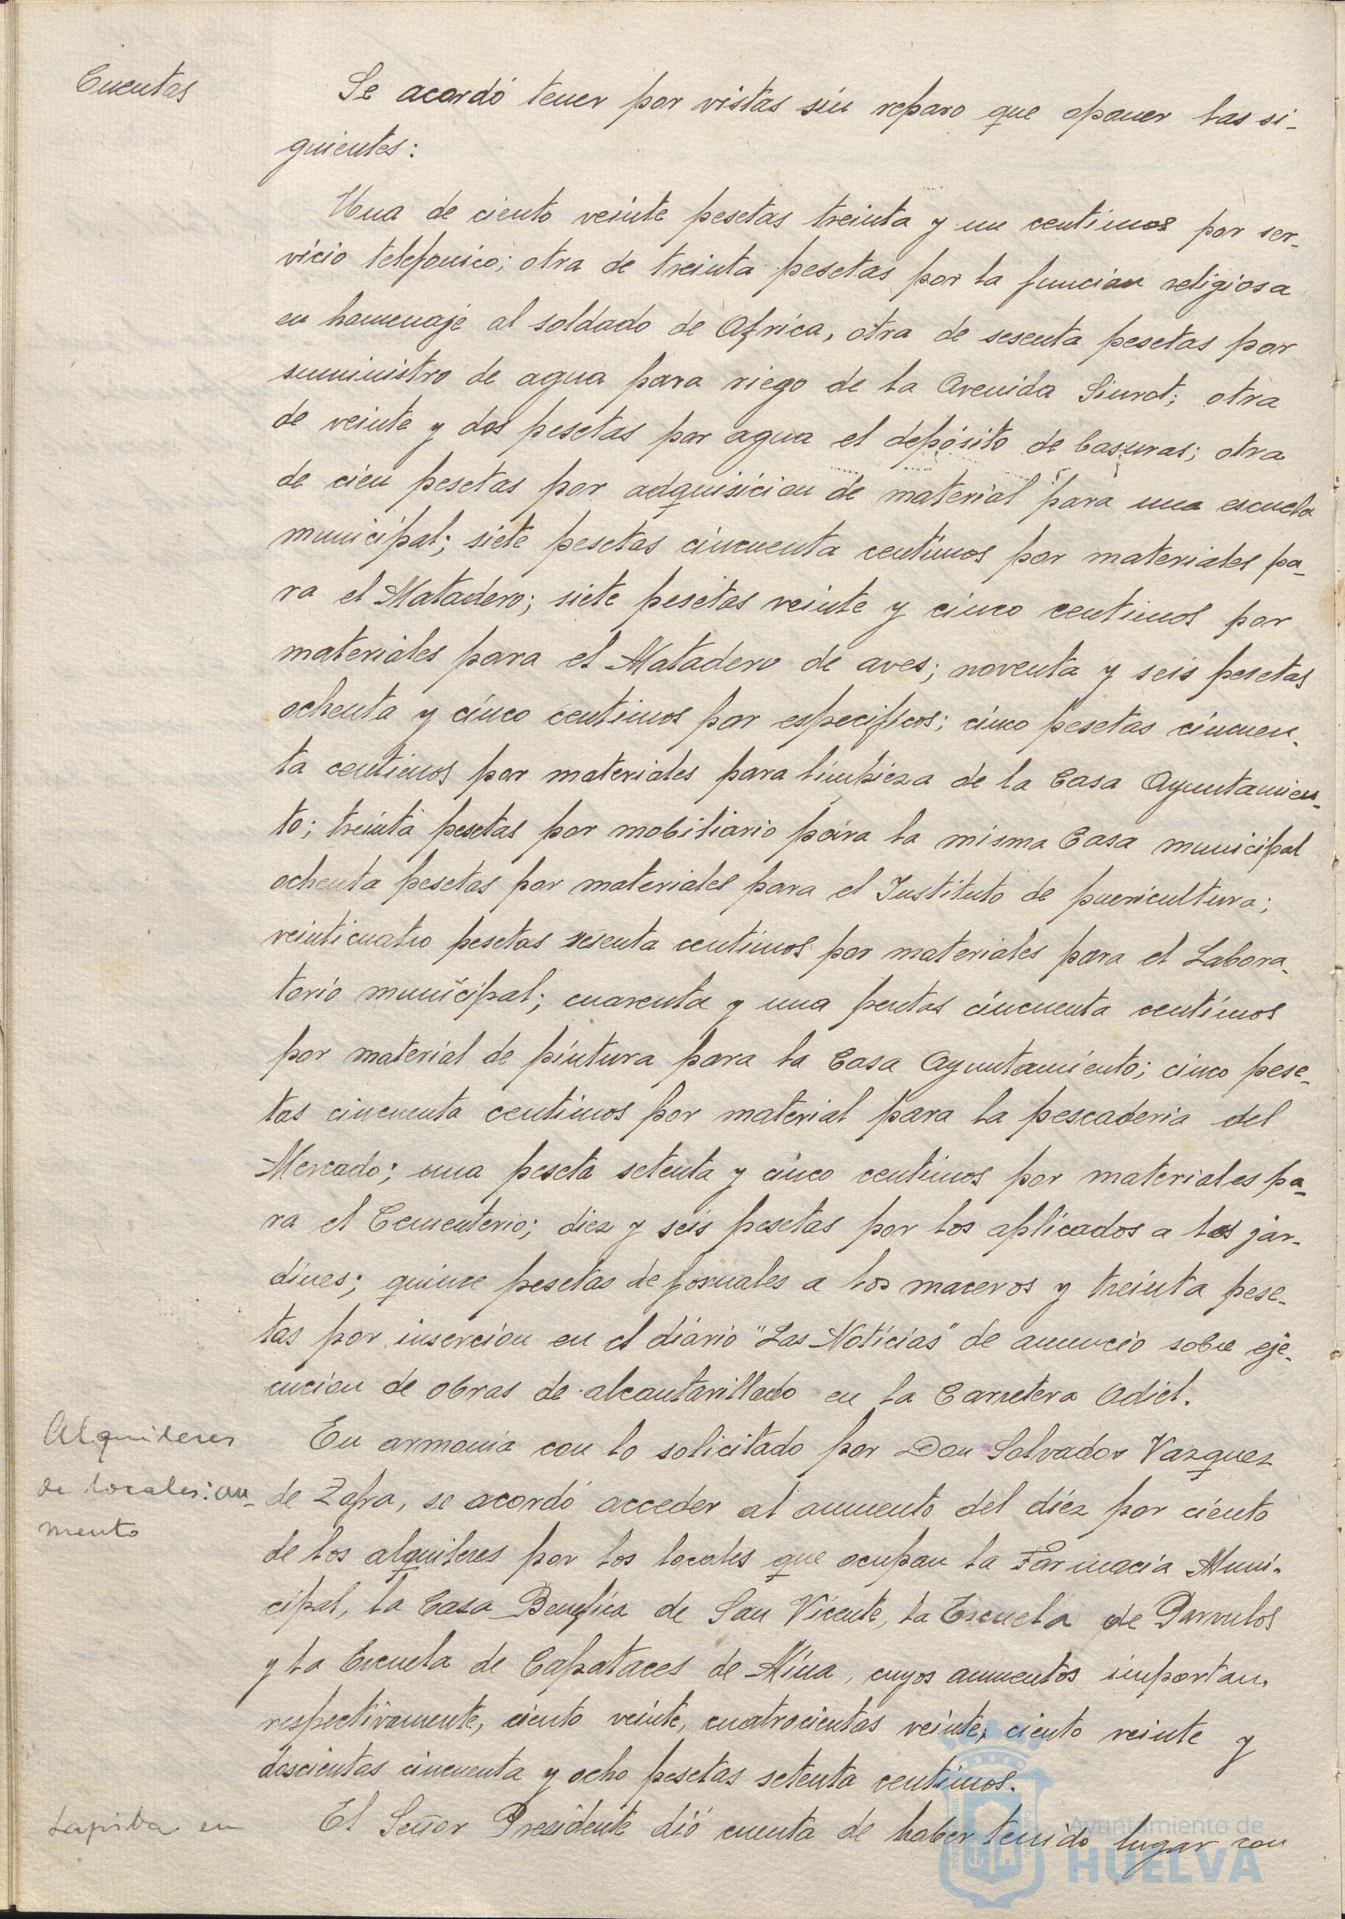 Cuentas
Se acordó tener por vistas sin reparo que oponer las si-
guientes:
Una de ciento veinte pesetas treinta y un centimos por ser-
vicio telefonico; otra de treinta pesetas por la funcion religiosa
en homenaje al soldado de Africa, otra de sesenta pesetas por
suministro de agua para riego de la Avenida Siurot; otra
de veinte y dos pesetas por agua el depósito de basuras; otra
de cien pesetas por adquisicion de material para una escuela
municipal; siete pesetas cincuenta centimos por materiales pa-
ra el Matadero; siete pesetas veinte y cinco centimos por
materiales para el Matadero de aves; noventa y seis pesetas
ochenta y cinco centimos por especificos; cinco pesetas cincuen-
ta centimos por materiales para limpieza de la Casa Ayuntamien-
to; treinta pesetas por mobiliario para la misma Casa municipal
ochenta pesetas por materiales para el Instituto de puericultura;
veinticuatro pesetas sesenta centimos por materiales para el Labora-
torio municipal; cuarenta y una pesetas cincuenta centimos
por material de pintura para la Casa Ayuntamiento; cinco pese-
tas cincuenta centimos por material para la pescaderia del
Mercado; una peseta setenta y cinco centimos por materiales pa-
ra el Cementerio; diez y seis pesetas por los aplicados a los jar-
dines; quince pesetas de jornales a los maceros y treinta pese-
tas por insercion en el diario "Las Noticias" de anuncio sobre eje-
cucion de obras de alcantarillado en la Carretera Odiel.
Alquileres
de locales: au-
mento
En armonia con lo solicitado por Don Salvador Vazquez
de Zafra, se acordó acceder al aumento del diez por ciento
de los alquileres por los locales que ocupan la Farmacia Muni-
cipal, la Casa Benefica de San Vicente, la Escuela de Parvulos
y la Escuela de Capataces de Mina, cuyos aumentos importan,
respectivamente, ciento veinte, cuatrocientas veinte, ciento veinte y
doscientas cincuenta y ocho pesetas setenta centimos.
Lapida en
El Señor Presidente dió cuenta de haber tenido lugar con
Ayuntamiento de
HUELVA